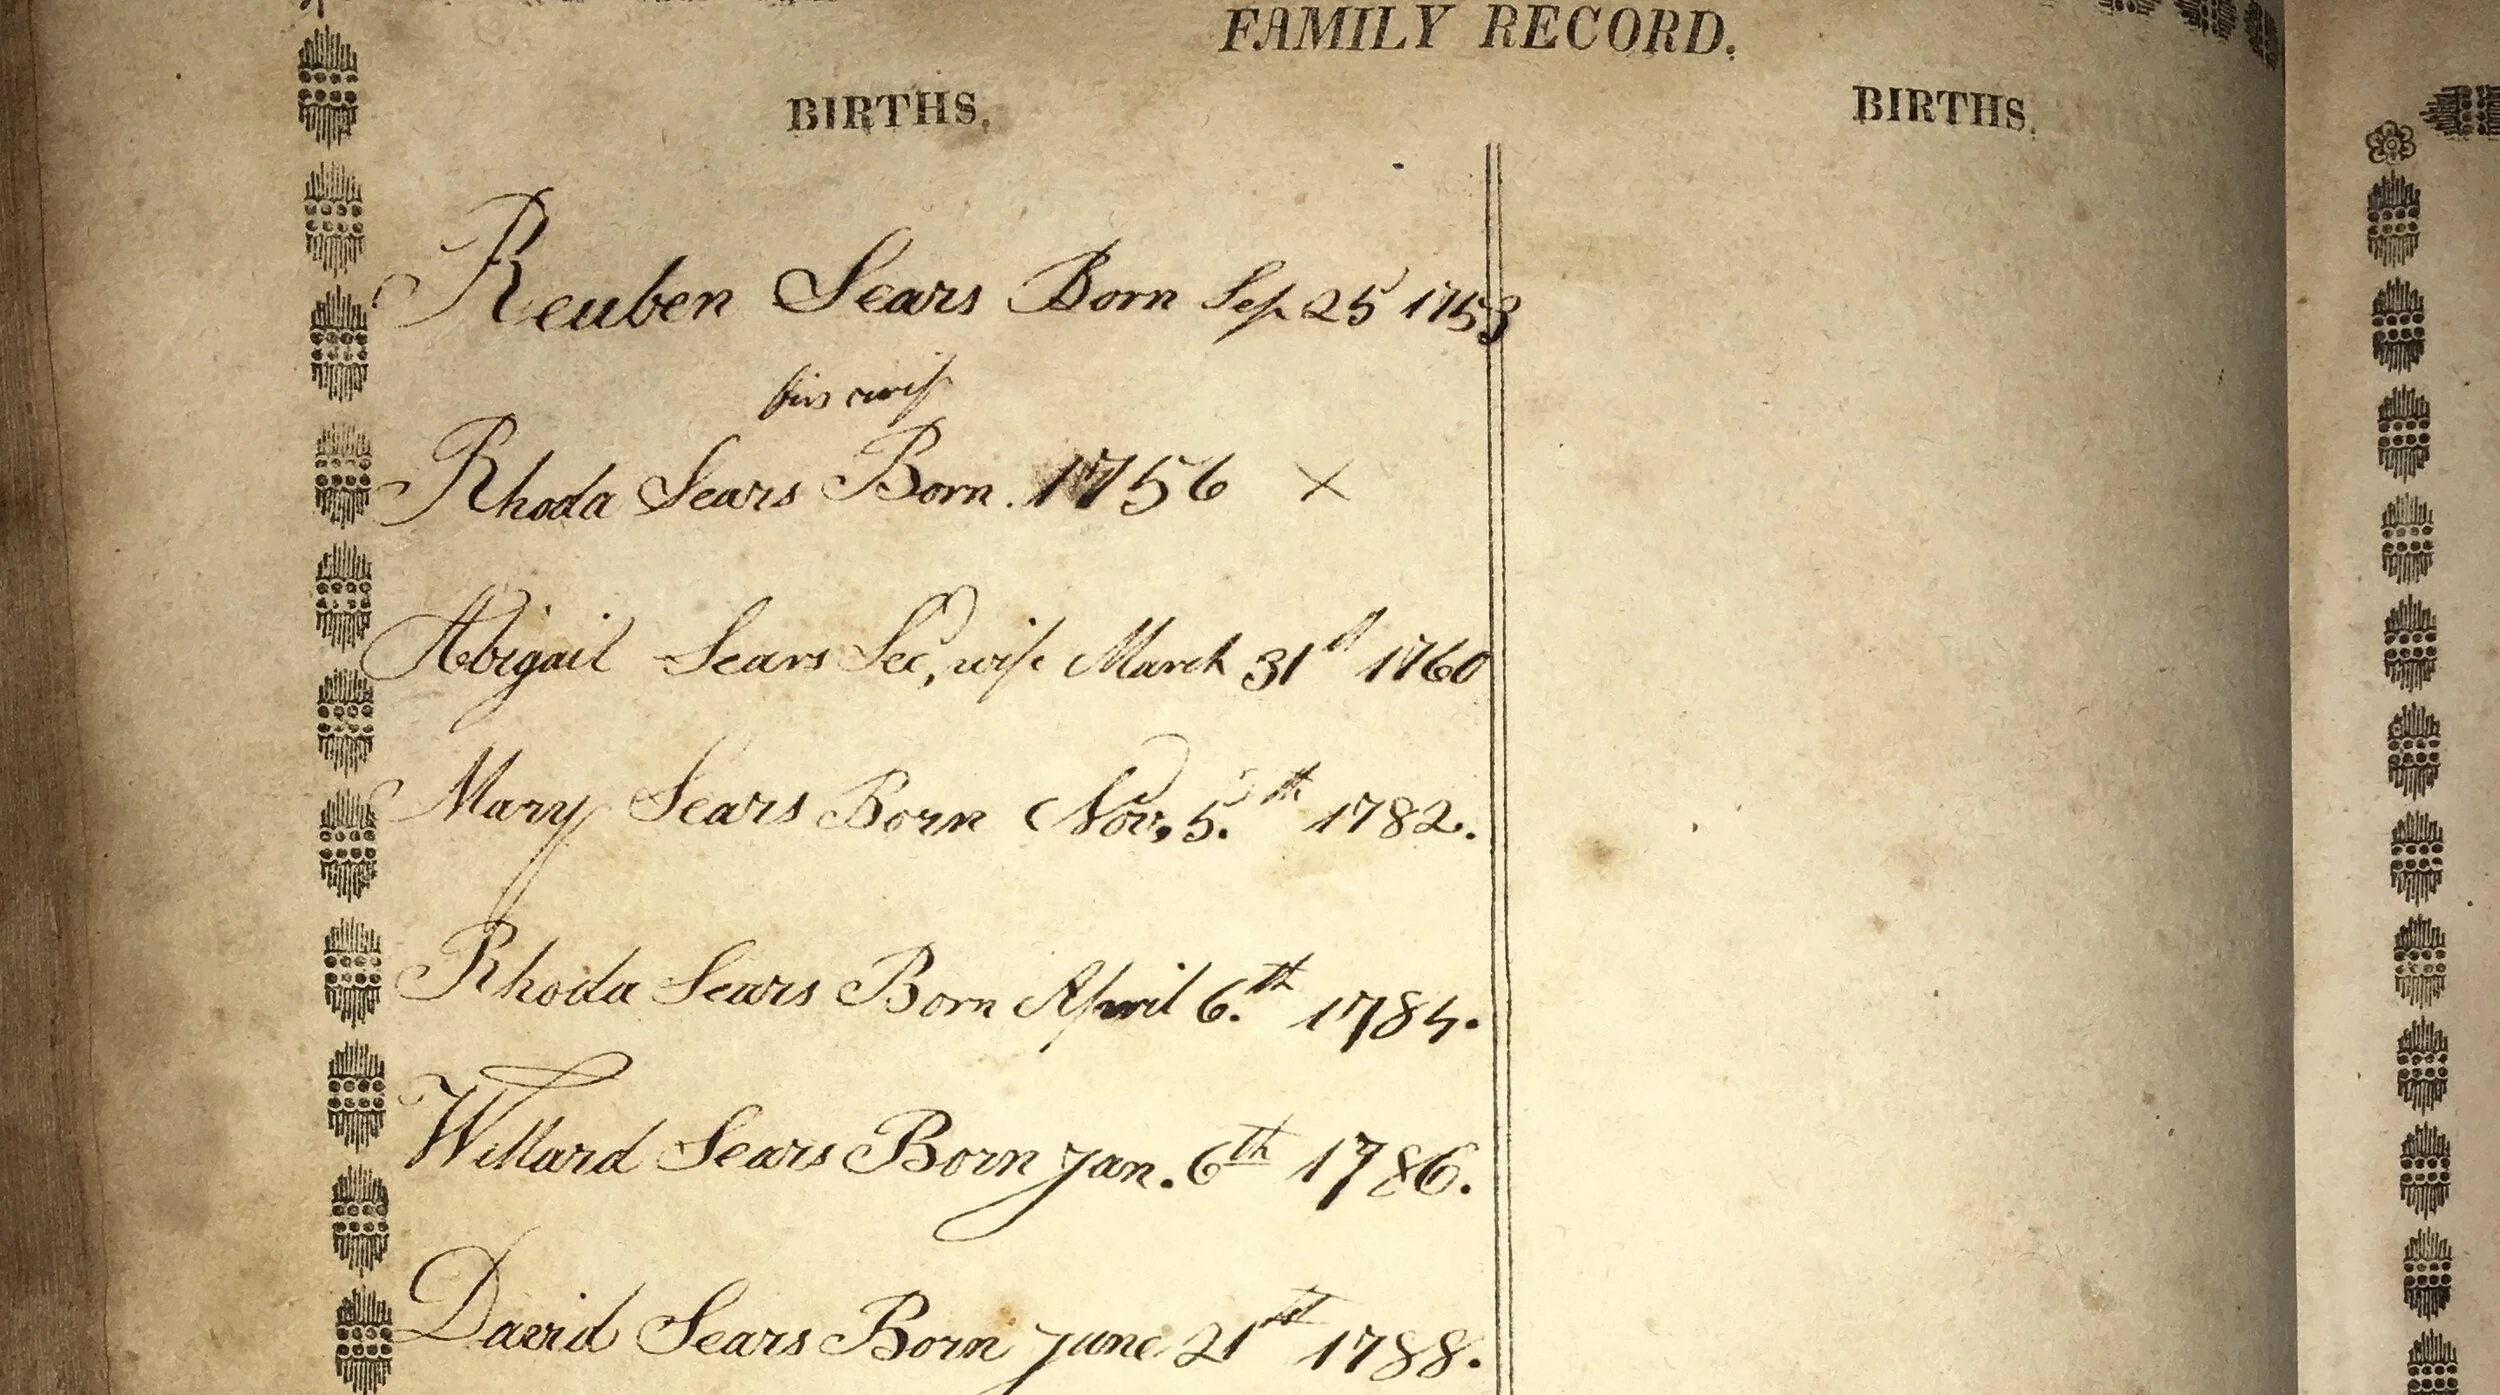 FAMILY RECORD.
BIRTHS.
Reuben Sears Born Sep 25 1753
his wife
Rhoda Sears Born. 1756 X
Abigail Sears Sec, wife March 31st 1760
Mary Sears Born Nov, 5.th 1782.
Rhoda Sears Born April 6.th 1784.
Willard Sears Born Jan. 6th 1786.
David Sears Born June 21st 1788.
BIRTHS.